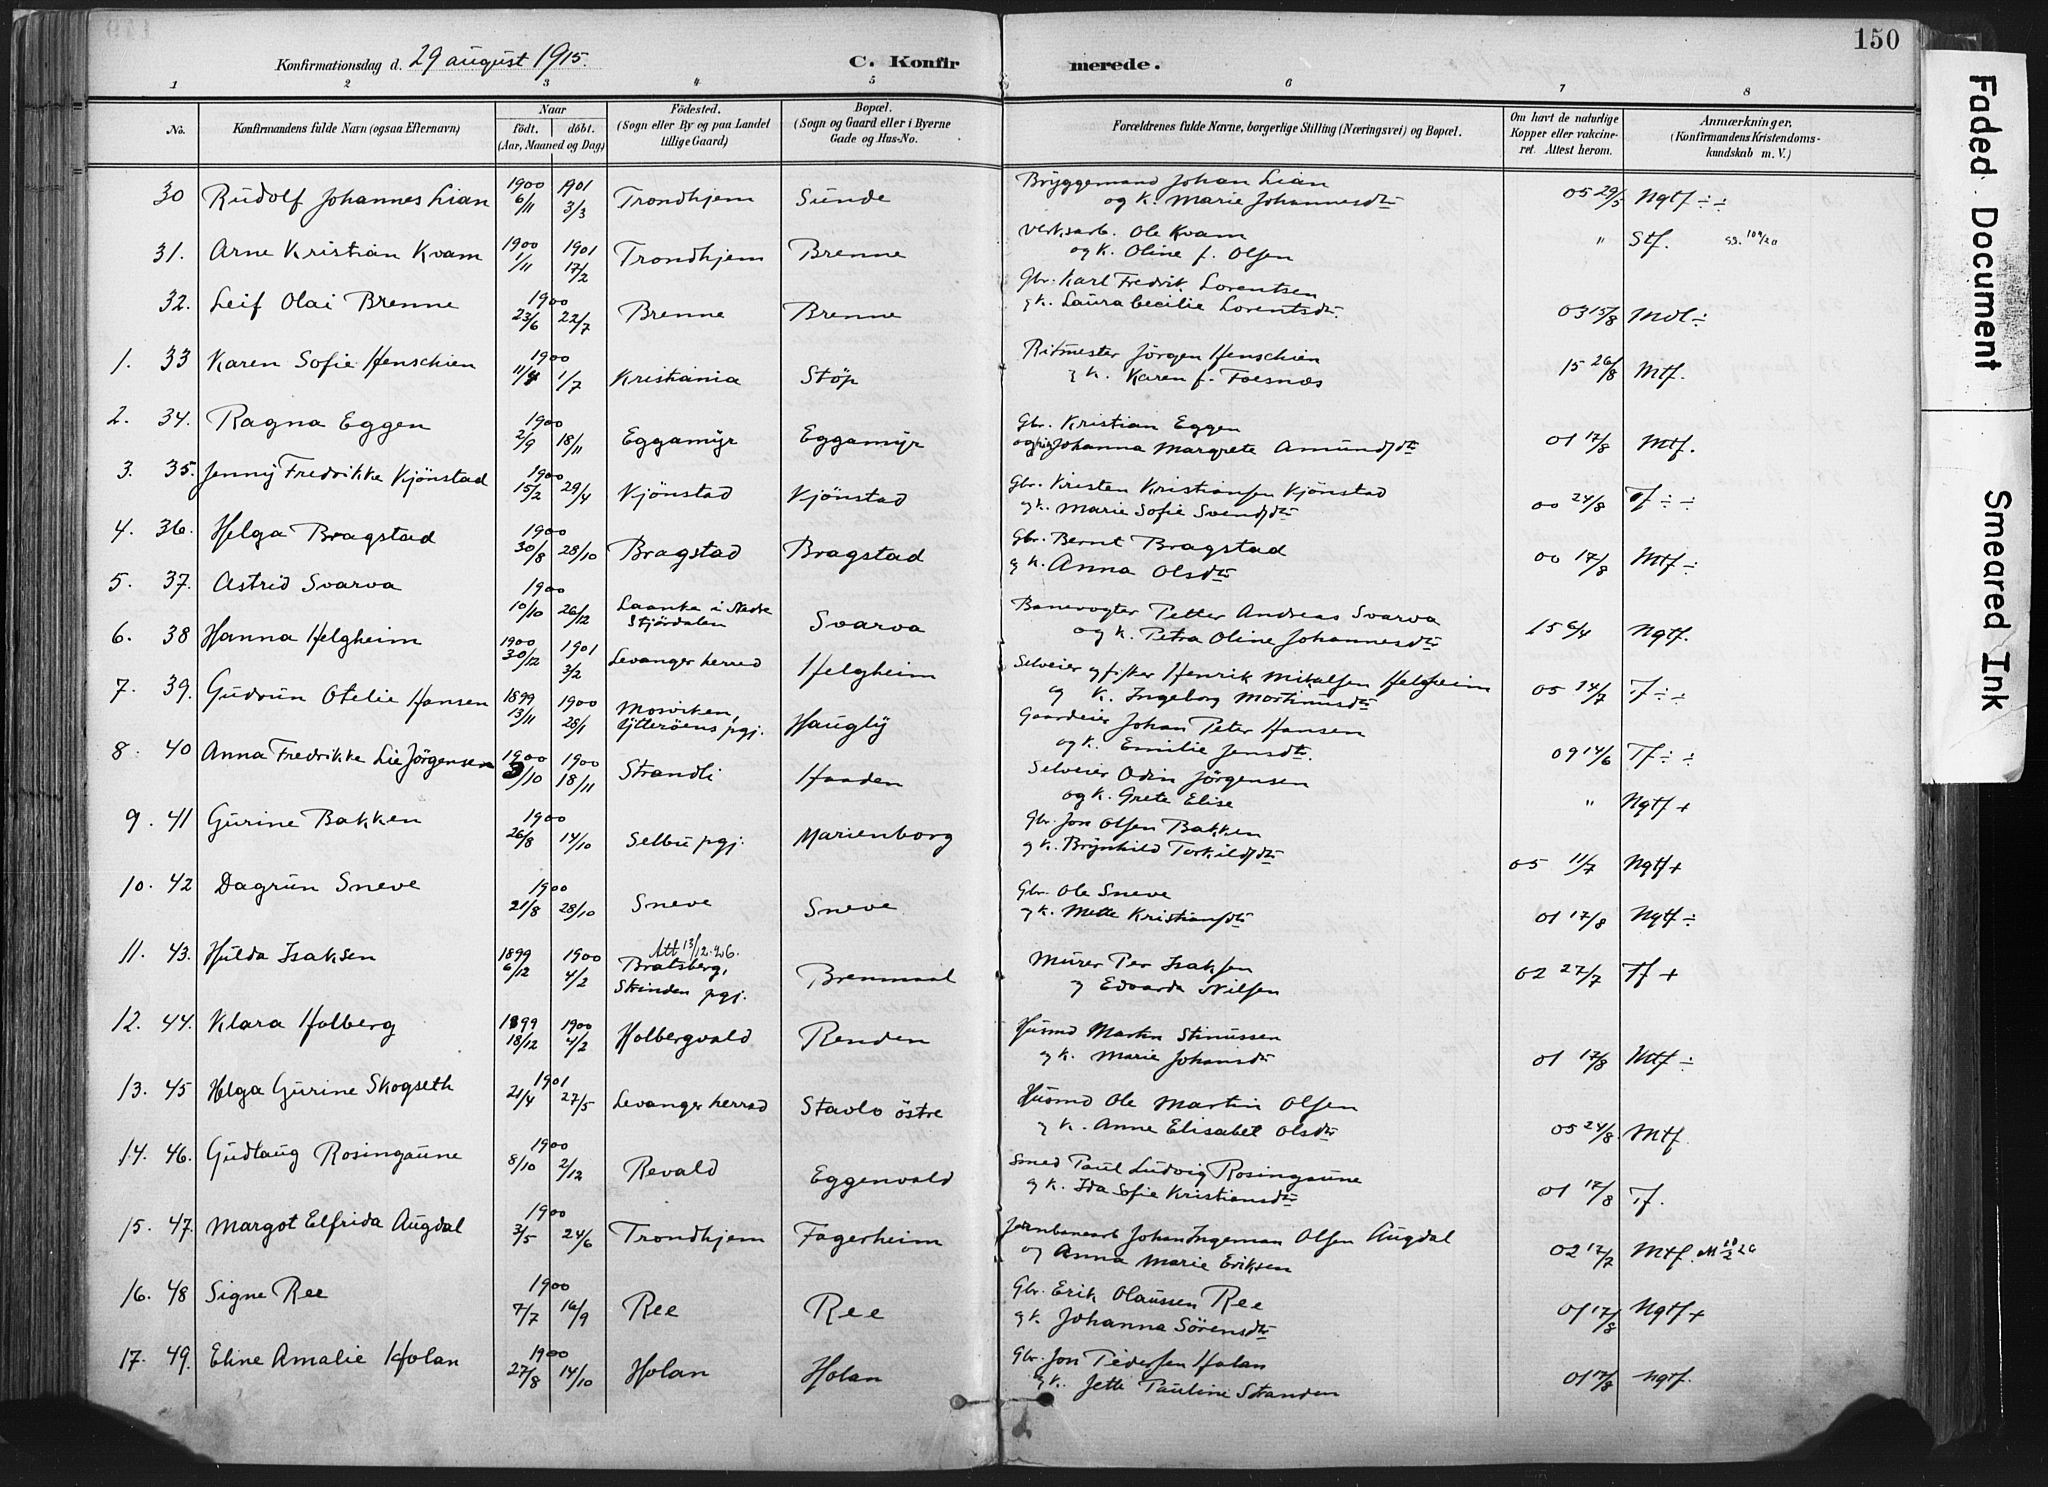 150
Konfirmationsdag d. 29 august 1915.
C. Konfirmerede.
1 2 3 4 5 6 7 8
No.
Konfirmandens fulde Navn (ogsaa Efternavn)
Naar
födt. döbt.
(Aar, Maaned og Dag)
Födested.
(Sogn eller By og paa Landet
tillige Gaard)
Bopæl.
(Sogn og Gaard eller i Byerne
Gade og Hus-No.
Forældrenes fulde Navne, borgerlige Stilling (Næringsvei) og Bopæl.
Om havt de naturlige
Kopper eller vakcine-
ret. Attest herom.
Anmærkninger.
(Konfirmandens Kristendoms-
kundskab m. V.)
30 Rudolf Johannes Lian 1900 6/11 1901 3/3 Trondhjem Sunde Bryggemand Johan Lian
og K. Marie Johannesdtr 05 29/5 Ngtf ÷÷
31. Arne Kristian Kvam 1900 1/11 1901 17/2 Trondhjem Brenne Verksarb. Ole Kvam
og K. Oline f. Olsen " Stf.
32. Leif Olai Brenne 1900 23/6 22/7 Brenne Brenne Gbr. Karl Fredrik Lorentsen
og K. Laura Cecilie Lorentsdtr. 03 15/8 Mdl ÷
1. 33 Karen Sofie Henschien 1900 11/4 1/7 Kristiania Stöp Ritmester Jörgen Henschien
og K. Karen f. Foesnæs 15 26/8 Mtf.
2. 34. Ragna Eggen 1900 2/9 18/11 Eggamyr Eggamyr Gbr. Kristian Eggen
og Johanna Margrete Amundsdtr 01 17/8 Mtf.
3. 35. Jenny Fredrikke Kjönstad 1900 15/2 29/4 Kjönstad Kjönstad Gbr. Kristen Kristiansen Kjönstad
og K. Marie Sofie Svendsdtr 00 24/8 Tf ÷ ÷
4. 36. Helga Bragstad 1900 30/8 28/10 Bragstad Bragstad Gbr. Bernt Bragstad
og K. Anna Olsdtr 00 17/8 Mtf ÷
5. 37. Astrid Svarva 1900 10/10 26/12 Laanke i Nedre
Stjördalen Svarva Banevogter Petter Andreas Svarva
og K. Petra Oline Johannesdtr 15 6/4 Ngtf.
6. 38 Hanna Helgheim 1900 30/12 1901 3/2 Levanger herred Helgheim Selveier og fisker Henrik Mikalsen Helgheim
og K. Ingeborg Mortinusdtr 05 14/7 Tf ÷ ÷
7. 39. Gudrun Otelie Hansen 1899 13/11 1900 28/1 Mosviken,
Ytteröens pgj. Haugly Gaardeier Johan Peter Hansen
og K. Emilie Jensdtr. 09 14/6 Tf ÷ ÷
8. 40 Anna Fredrikke Lie Jörgensen 1900 3/10 1900 18/11 Strandli Haaden Selveier Odin Jörgensen
og K. Grete Elise " Ngtf +
9. 41 Gurine Bakken 1900 26/8 14/10 Selbu pgj. Marienborg Gbr. Jon Olsen Bakken
og K. Brynhild Torkildsdtr 05 11/7 Ngtf +
10. 42 Dagrun Sneve 1900 21/8 28/10 Sneve Sneve Gbr. Ole Sneve
og K. Mette Kristiansdtr 01 17/8 Ngtf ÷
11. 43. Hulda Isaksen 1899 6/12 1900 4/2 Att 13/12.46.
Bratsberg,
Strinden pgj. Bremnaal Murer Per Isaksen
og Edvarda Nilsen 02 27/7 Tf +
12. 44. Klara Holberg 1899 18/12 1900 4/2 Holbergvald Renden Husmd Martin Stinussen
og K. Marie Johansdtr 01 17/8 Mtf ÷
13. 45 Helga Gurine Skogseth 1901 21/4 27/5 Levanger herred Stavlo östre Husmd Ole Martin Olsen
og K. Anne Elisabet Olsdtr 05 24/8. Mtf.
14. 46. Gudlaug Rosingaune 1900 8/10 2/12 Revald Eggenvald Smed Paul Ludvig Rosingaune
og K. Ida Sofie Kristiansdtr 01 17/8 Tf.
15. 47. Margot Elfrida Augdal 1900 3/5 24/6 Trondhjem Fagerheim Jernbanearb Johan Ingeman Olsen Augdal
og Anna Marie Eriksen 02 17/7 Mtf.
16. 48 Signe Ree 1900 7/7 16/9 Ree Ree Gbr. Erik Olaussen Ree
og K. Johanna Sörensdtr 01 17/8 Ngtf +
17. 49. Eline Amalie Holan 1900 27/8 14/10 Holan Holan Gbr. Jon Pedersen Holan
og K. Jette Pauline Stranden 01 17/8 Ngtf.
Faded Document
Smeared Ink